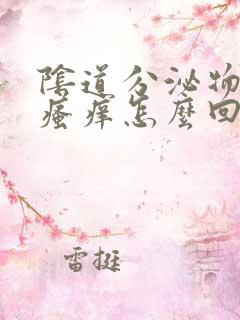 陰道分泌物
瘙痒怎麼回
雷挺